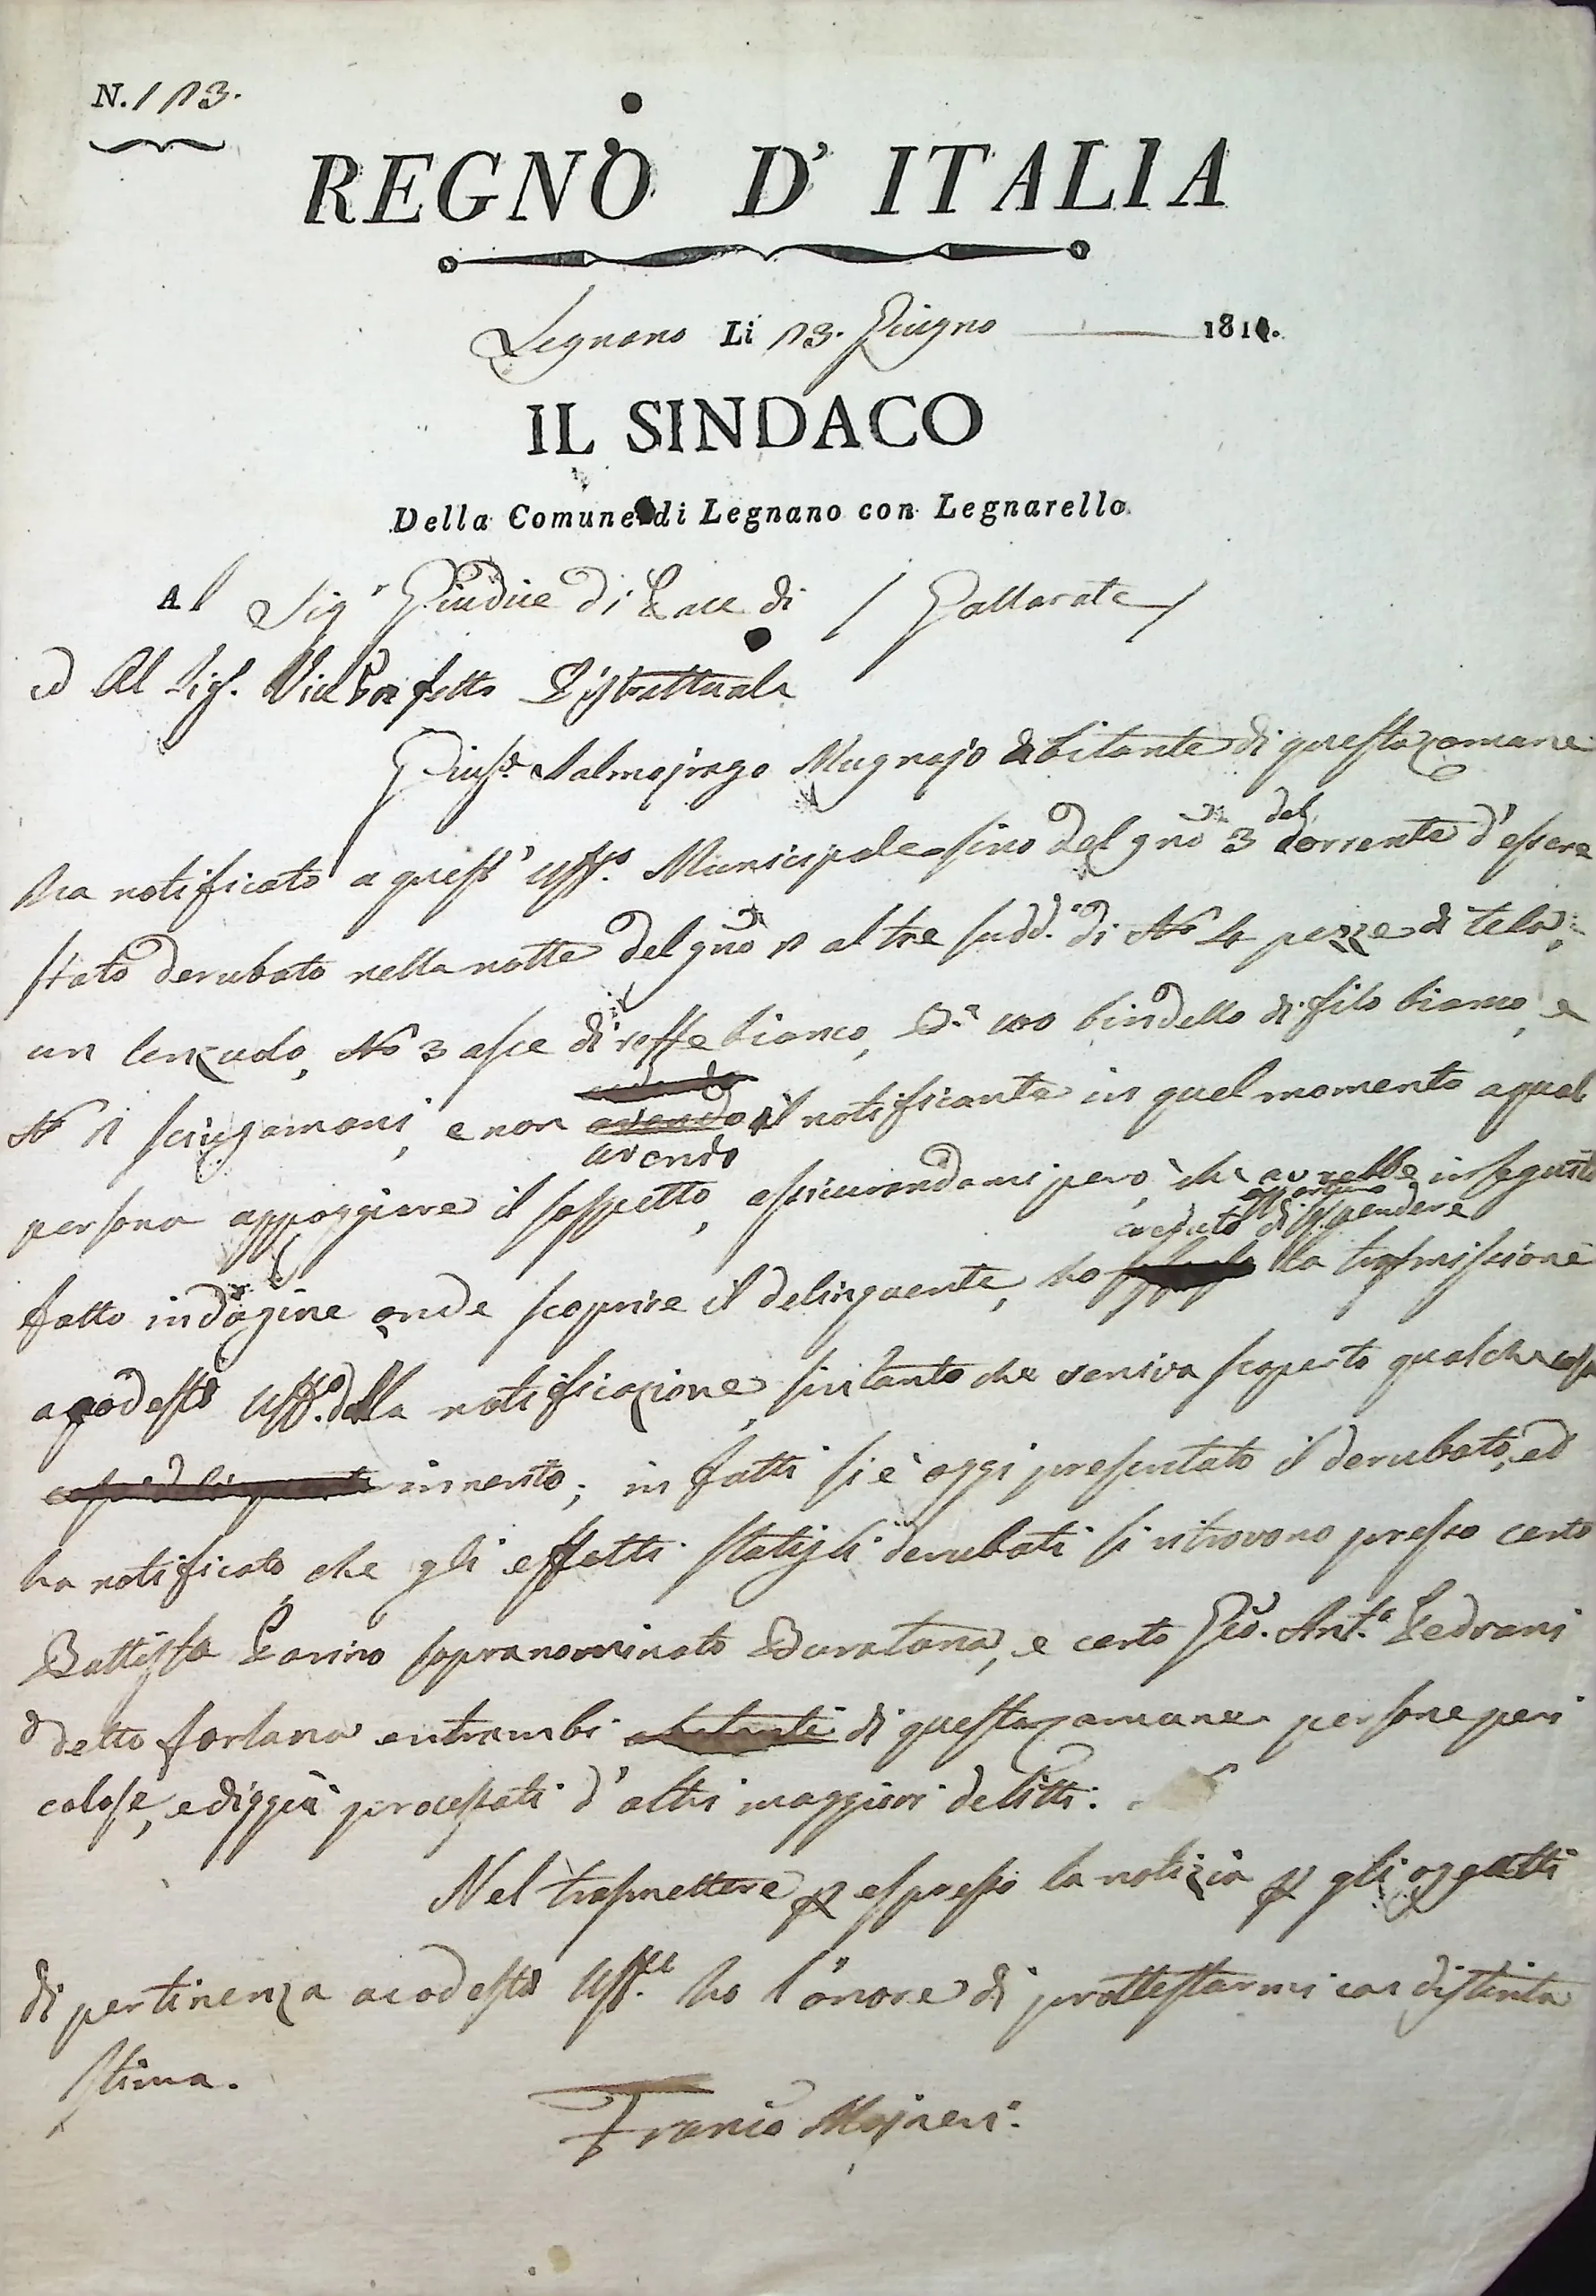 N. 113.
REGNO D' ITALIA
Legnano Li 13. Giugno 181
IL SINDACO
Della Comune di Legnano con Legnarello.
Al Sig.r Giudice di Pace di / Gallarate /
ed Al Sig. Vice Prefetto Distrettuale
Gius.e Salmojrago Mugnajo abitante di questa comune
ha notificato a quest' Uff.o Municipale sino del gno 3 del corrente d'essere
stato derubato nella notte del gno 2 al tre sudd.o di No 4 pezze di tela,
un lenzuolo, No 3 asce di reffe bianco, bindello di filo bianco, e
No 2 sciugamani, e non avendo il notificante in quel momento a qual
avendo
persona appoggiare il sospetto, assicurandomi però, che avrebbe in seguito
creduto opportuno di sospendere
fatto indagine onde scoprire il delinquente, ho la trasmissione
a codesto Uff.o della notificazione, sintanto che veniva scoperto qualche
in merito; in fatti si è oggi presentato il derubato, ed
ha notificato, che gli effetti statigli derubati si ritrovono presso certo
Battista Parino sopranominato Buratana, e certo Gio. Ant.o Pedrani
detto forlano entrambi abitanti di questa comune persone peri
colose, e di già processati d'altri maggiori delitti.
Nel trasmettere p espresso la notizia p gli oggetti
di pertinenza a codesto Uff. ho l'onore di prottestarmi con distinta
stima.
Franco Mojneri.